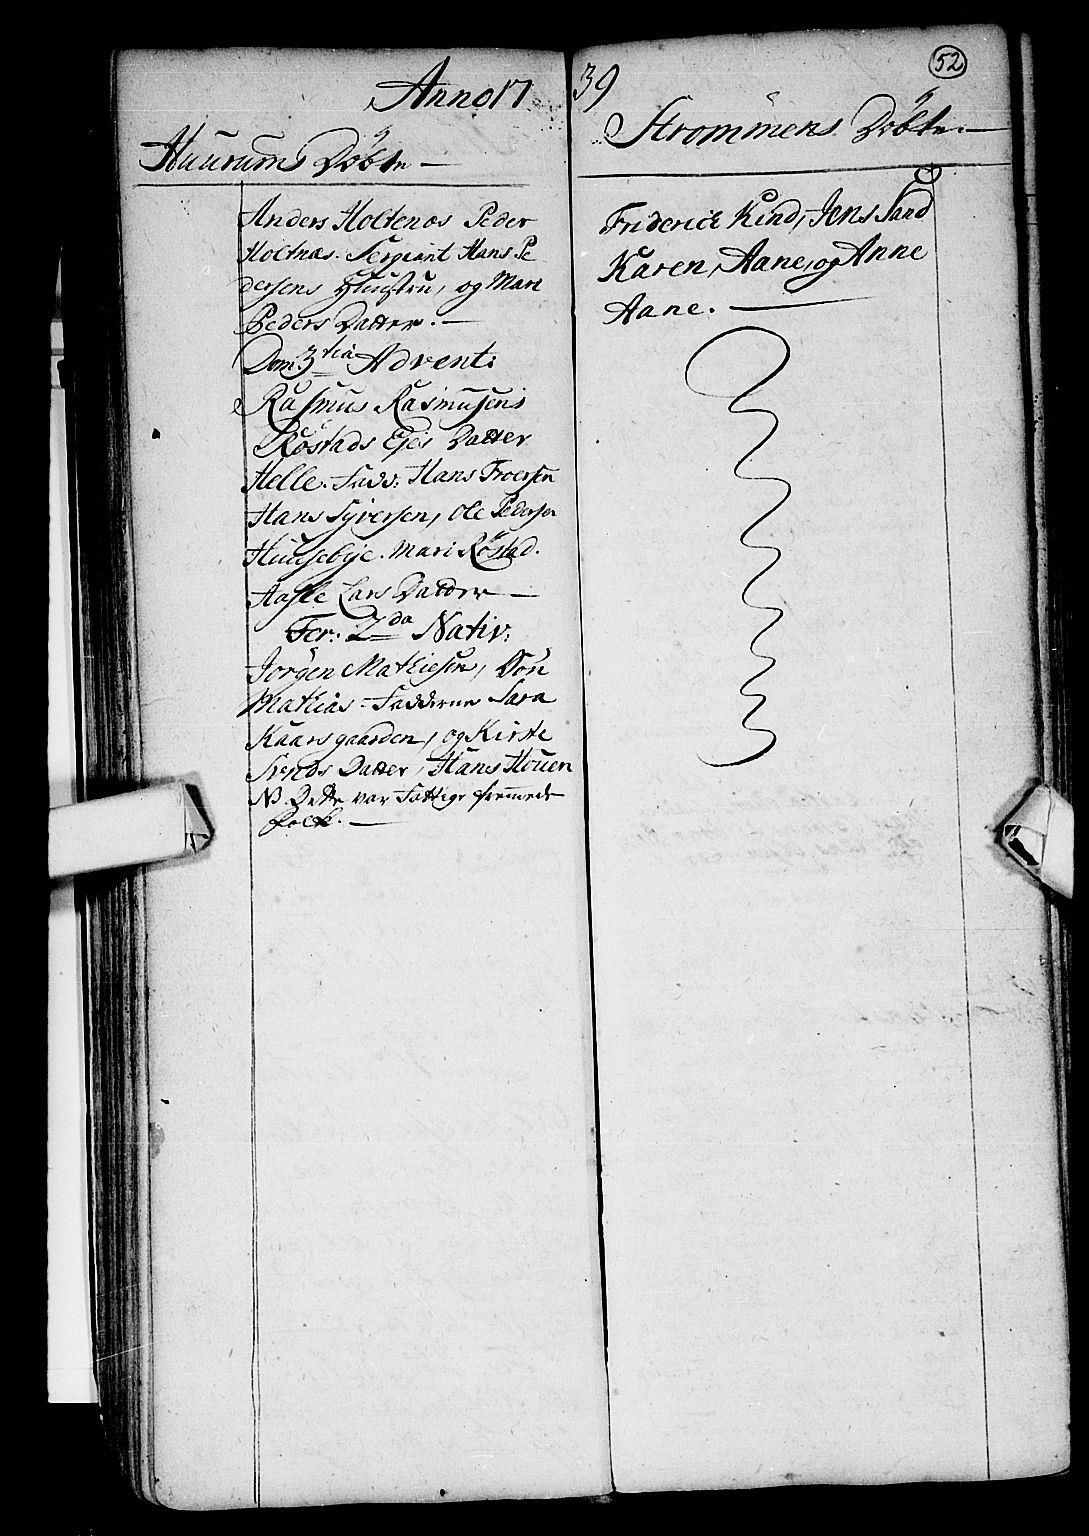 Anno 17 39
52
Haurums Döbte —
Anders Holtenæs Peder
Holtnæs. Sergiant Hans Pe
dersens Huustru, og Mari
Peders Datter. —
Dom: 3tia Advent:
Rasmus Rasmusens
Röstads Ejes Datter
Helle. Fadd: Hans Froersen
Hans Syversen, Ole Pedersen
Huusebye. Mari Röstad.
Aasle Lars Datter —
Fer: 2da Nativ:
Jörgen Mathiesen, Dön
Mathias = Fadderne Sara
Kaarsgaarden, og Kirste
Svends Datter, Hans Houen
NB. Dette var Fattige fremmede
Folk. —
Strömmens Döbte. —
Friderick Kind, Jens Sand
Karen, Aane, og Anne
Aane. —